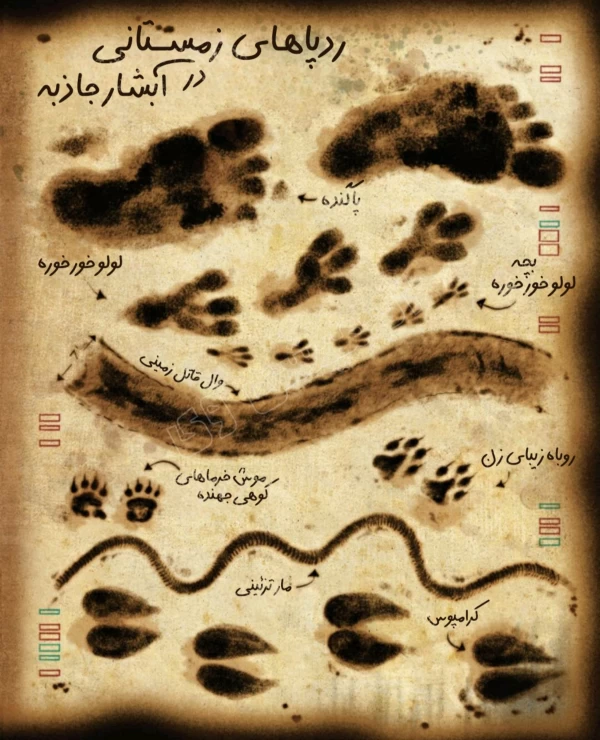 ردپاهای زمستانی
در آبشار جاذبه
پاگنده
لولو خور خوره
بچه
لولو خور خوره
وال قاتل زمینی
روباه زیبای زن
موش خرماهای
کوهی جهنده
مار تزئینی
کرامپوس